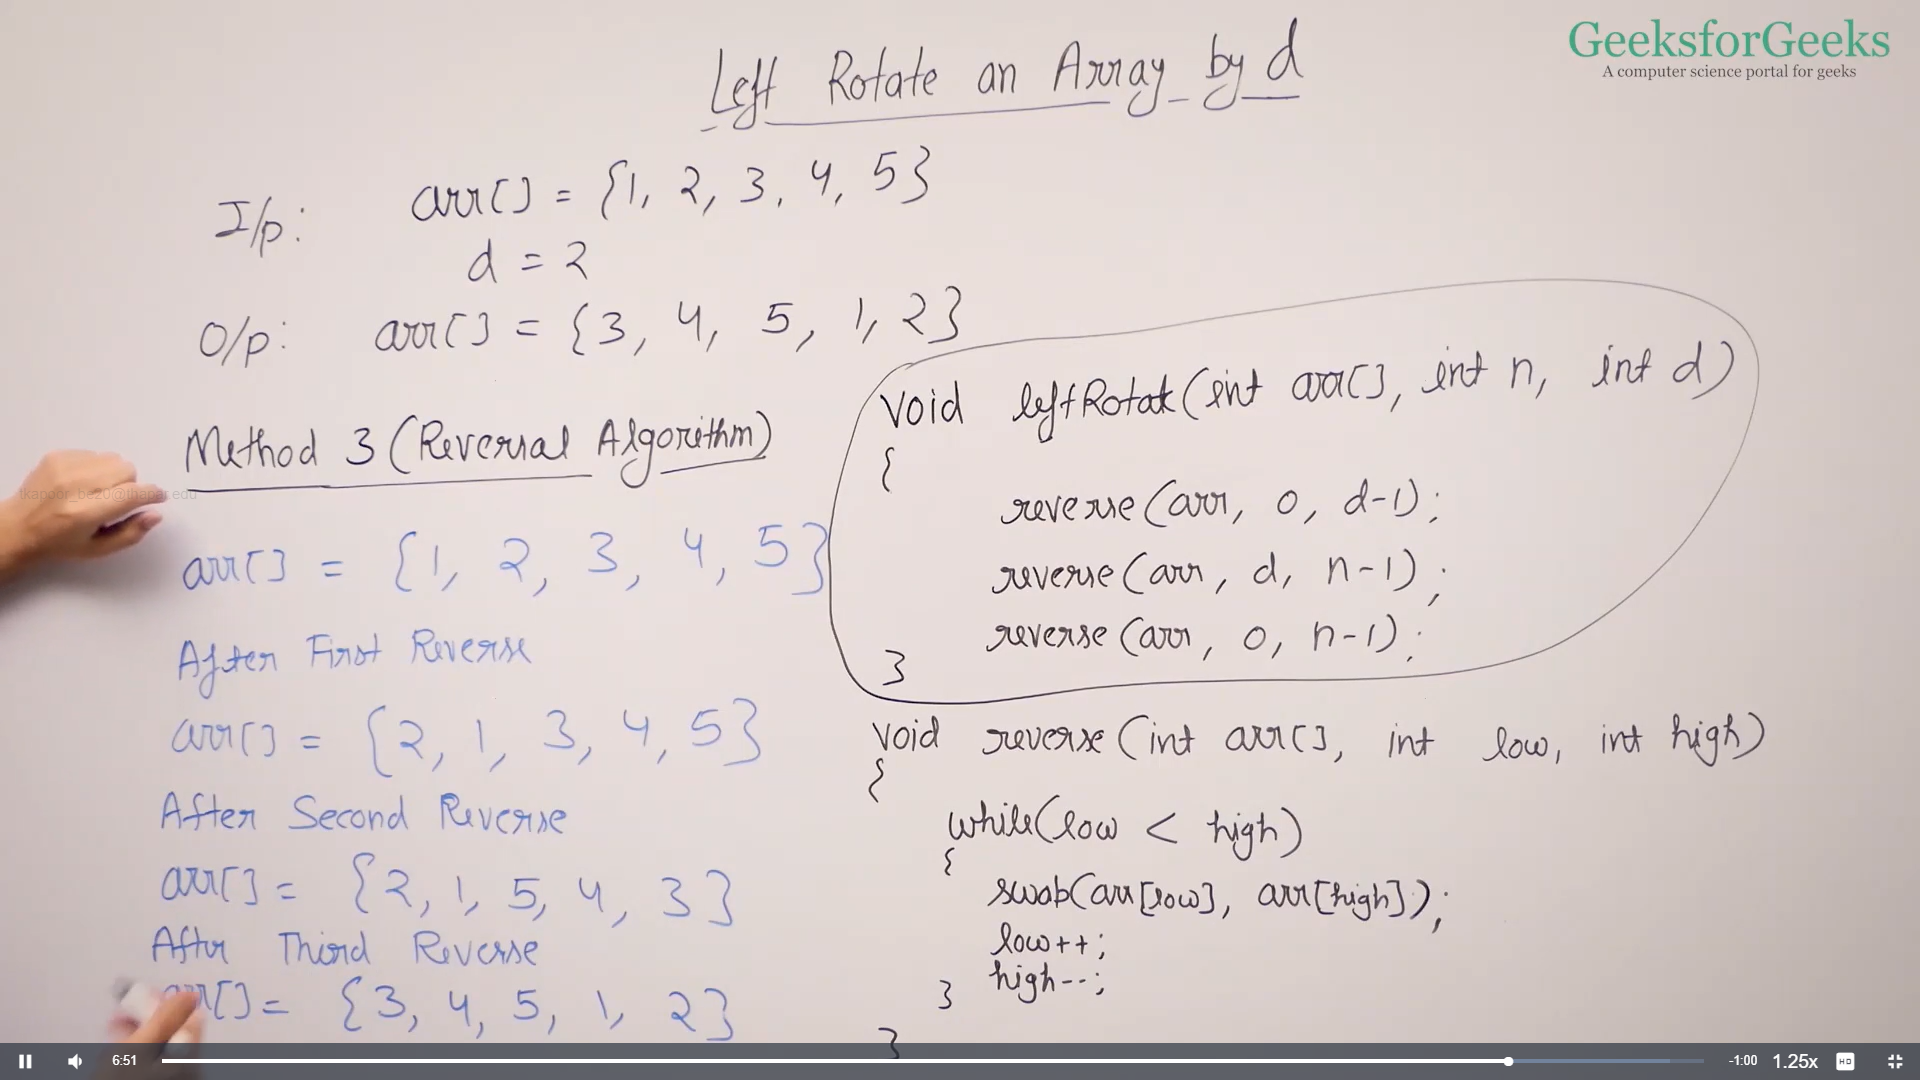 GeeksforGeeks
A computer science portal for geeks
Left Rotate an Array by d
I/p: arr[] = {1, 2, 3, 4, 5}
d = 2
O/p: arr[] = {3, 4, 5, 1, 2}
Method 3 (Reversal Algorithm)
tkapoor_be20@thapar.edu
arr[] = {1, 2, 3, 4, 5}
After First Reverse
arr[] = {2, 1, 3, 4, 5}
After Second Reverse
arr[] = {2, 1, 5, 4, 3}
After Third Reverse
arr[] = {3, 4, 5, 1, 2}
void leftRotate(int arr[], int n, int d)
{
reverse(arr, 0, d-1);
reverse(arr, d, n-1);
reverse(arr, 0, n-1);
}
void reverse(int arr[], int low, int high)
{
while(low < high)
{
swap(arr[low], arr[high]);
low++;
high--;
}
}
6:51
-1:00
1.25x
HD